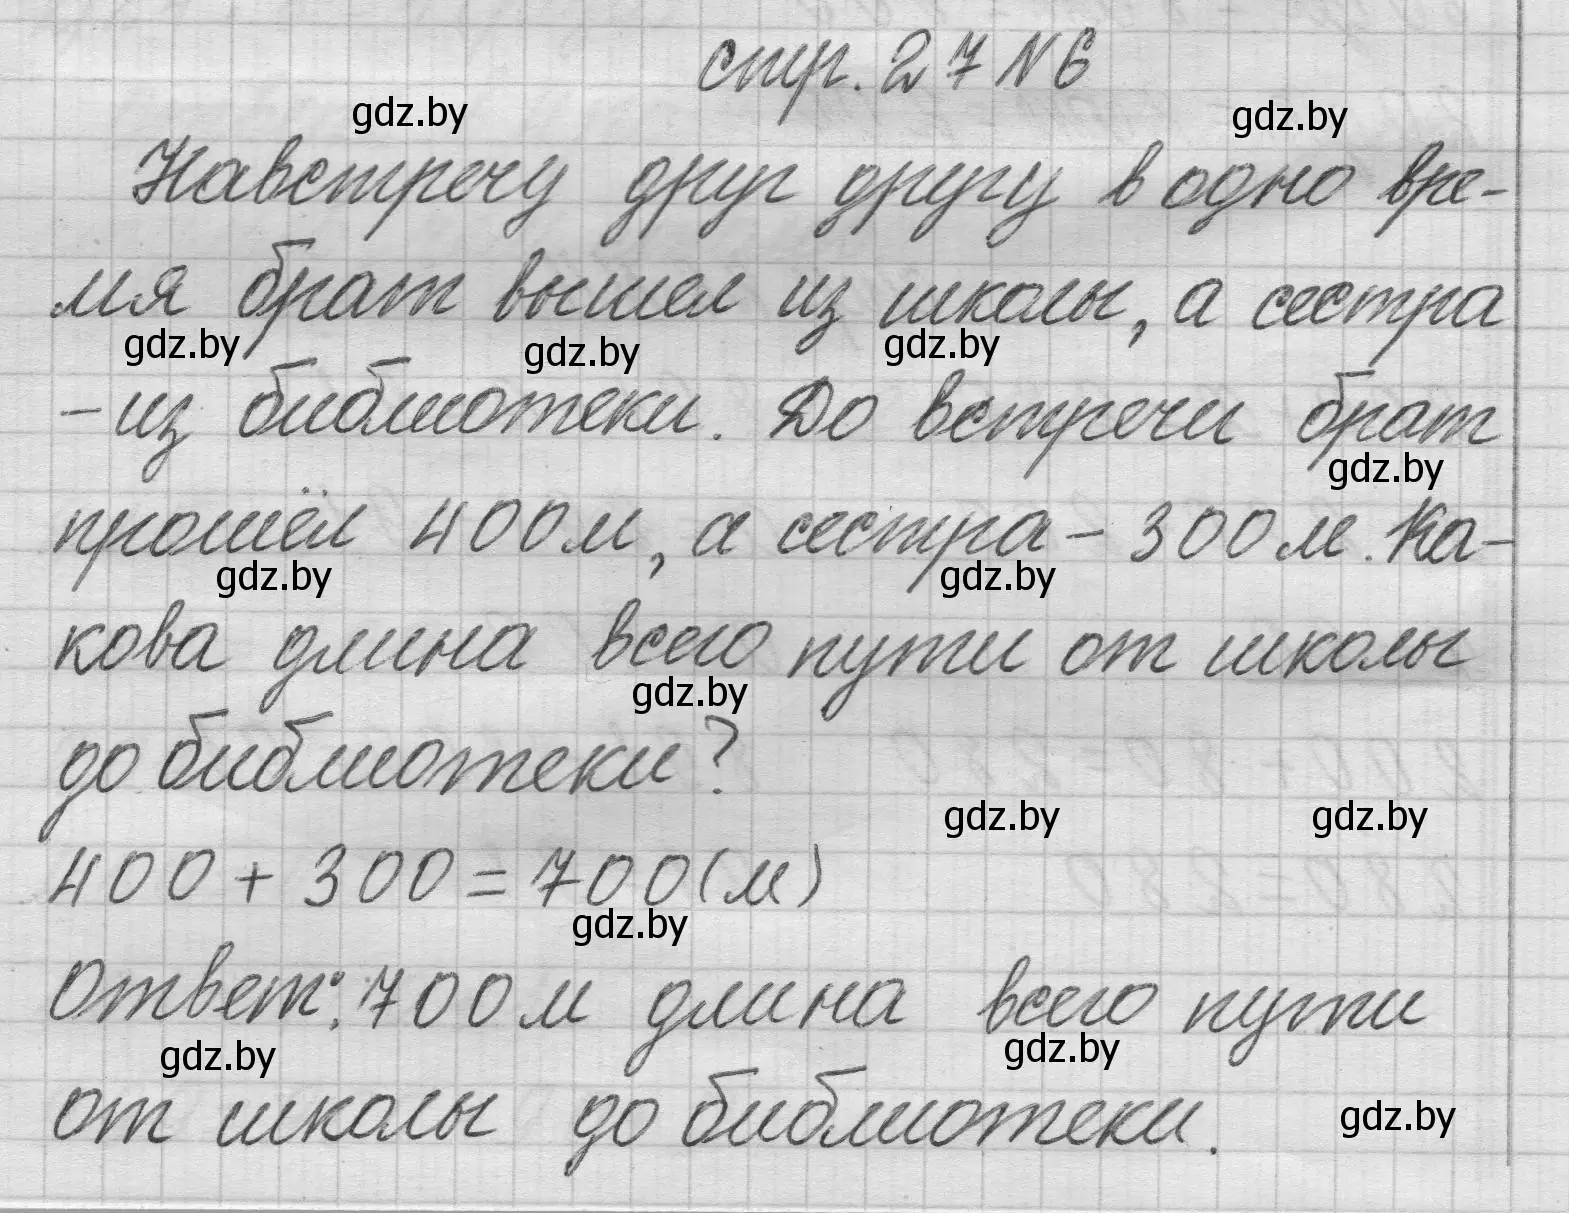 стр. 27 N 6
gdz.by gdz.by
Навстречу друг другу в одно вре-
мя брат вышел из школы, а сестра
gdz.by gdz.by gdz.by
- из библиотеки. До встречи брат
gdz.by
прошёл 400 м, а сестра - 300 м. Ка-
gdz.by gdz.by
кова длина всего пути от школы
gdz.by
до библиотеки?
gdz.by gdz.by
400 + 300 = 700 (м)
gdz.by
Ответ: 700 м длина всего пути
gdz.by gdz.by
от школы до библиотеки.
gdz.by